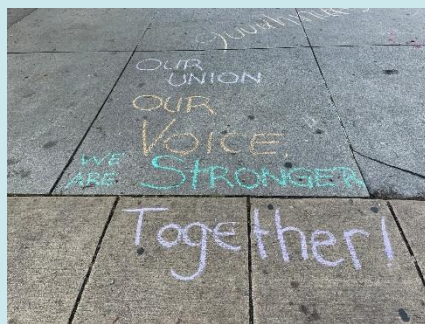 OUR
UNION
OUR
VOICE
WE
ARE STRONGER
Together!